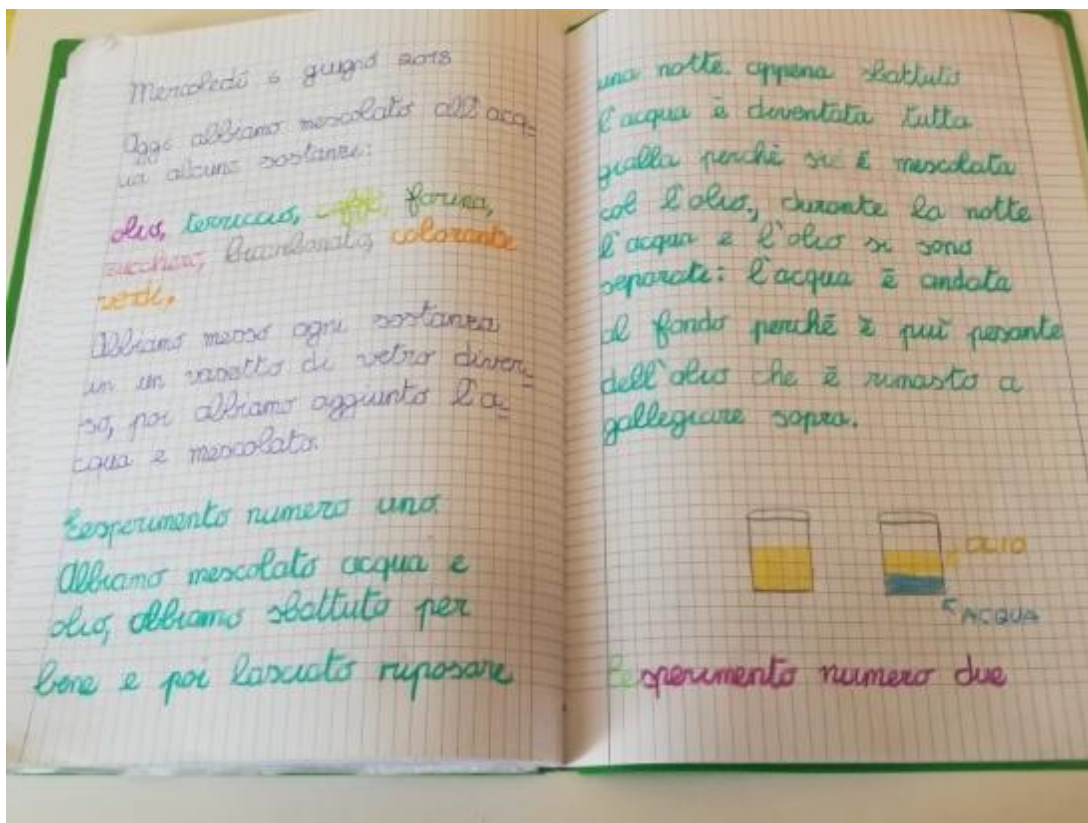 Mercoledì 6 giugno 2018
Oggi abbiamo mescolato all'acq-
ua alcune sostanze:
olio, terriccio, farina,
zucchero, bicarbonato, colorante
verde,
Abbiamo messo ogni sostanza
in un vasetto di vetro diver-
so, poi abbiamo aggiunto l'a-
cqua e mescolato.
Eesperimento numero uno.
Abbiamo mescolato acqua e
olio, abbiamo sbattuto per
bene e poi lasciato riposare
una notte. appena sbattuto
l'acqua è diventata tutta
gialla perchè si è mescolata
col l'olio, durante la notte
l'acqua e l'olio si sono
separati: l'acqua è andata
al fondo perchè è più pesante
dell'olio che è rimasto a
gallegiare sopra.
OLIO
ACQUA
Esperimento numero due